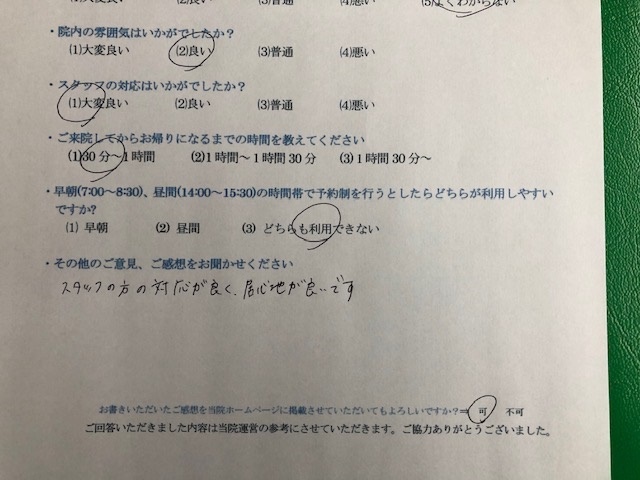 (2)良い (3)普通 (4)悪い (5)よくわからない
・院内の雰囲気はいかがでしたか？
(1)大変良い (2)良い (3)普通 (4)悪い
・スタッフの対応はいかがでしたか？
(1)大変良い (2)良い (3)普通 (4)悪い
・ご来院してからお帰りになるまでの時間を教えてください
(1)30分～1時間 (2)1時間～1時間30分 (3)1時間30分～
・早朝(7:00～8:30)、昼間(14:00～15:30)の時間帯で予約制を行うとしたらどちらが利用しやすい
ですか?
(1) 早朝 (2) 昼間 (3) どちらも利用できない
・その他のご意見、ご感想をお聞かせください
スタッフの方の対応が良く、居心地が良いです
お書きいただいたご感想を当院ホームページに掲載させていただいてもよろしいですか？⇒ 可 不可
ご回答いただきました内容は当院運営の参考にさせていただきます。ご協力ありがとうございました。